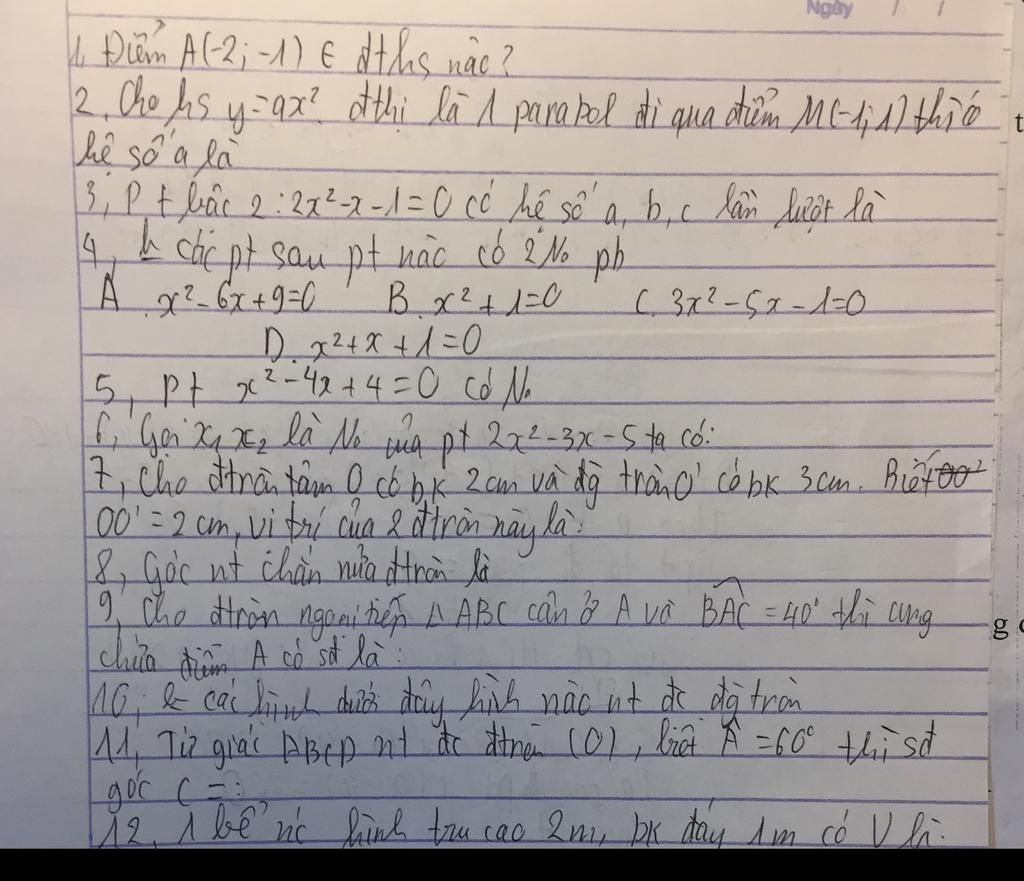 Ngày / /
1. Điểm A(-2; -1) ∈ đths nào?
2, Cho hs y=ax². đthị là 1 parabol đi qua điểm M(-1; 1) thì có
hệ số a là
3, Pt bậc 2 : 2x²-x-1=0 có hệ số a, b, c lần lượt là
4, các pt sau pt nào có 2 No pb
A. x²-6x+9=0 B. x²+1=0 C. 3x²-5x-1=0
D. x²+x+1=0
5, pt x²-4x+4=0 có No
6, Gọi x₁ x₂ là No của pt 2x²-3x-5 ta có:
7, Cho đtròn tâm O có bk 2cm và đg tròn O' có bk 3cm. Biết
OO'=2cm, vị trí của 2 đtròn này là:
8, Góc nt chắn nửa đtròn là
9, Cho đtròn ngoại tiếp Δ ABC cân ở A và BAC = 40° thì cung
chứa điểm A có sđ là:
10, các hình dưới đây hình nào nt đc đg tròn
11, Tứ giác ABCD nt đc đtròn (O), biết Â=60° thì sđ
góc C =:
12, 1 bể nc hình trụ cao 2m, bk đáy 1m có V là:
t
g